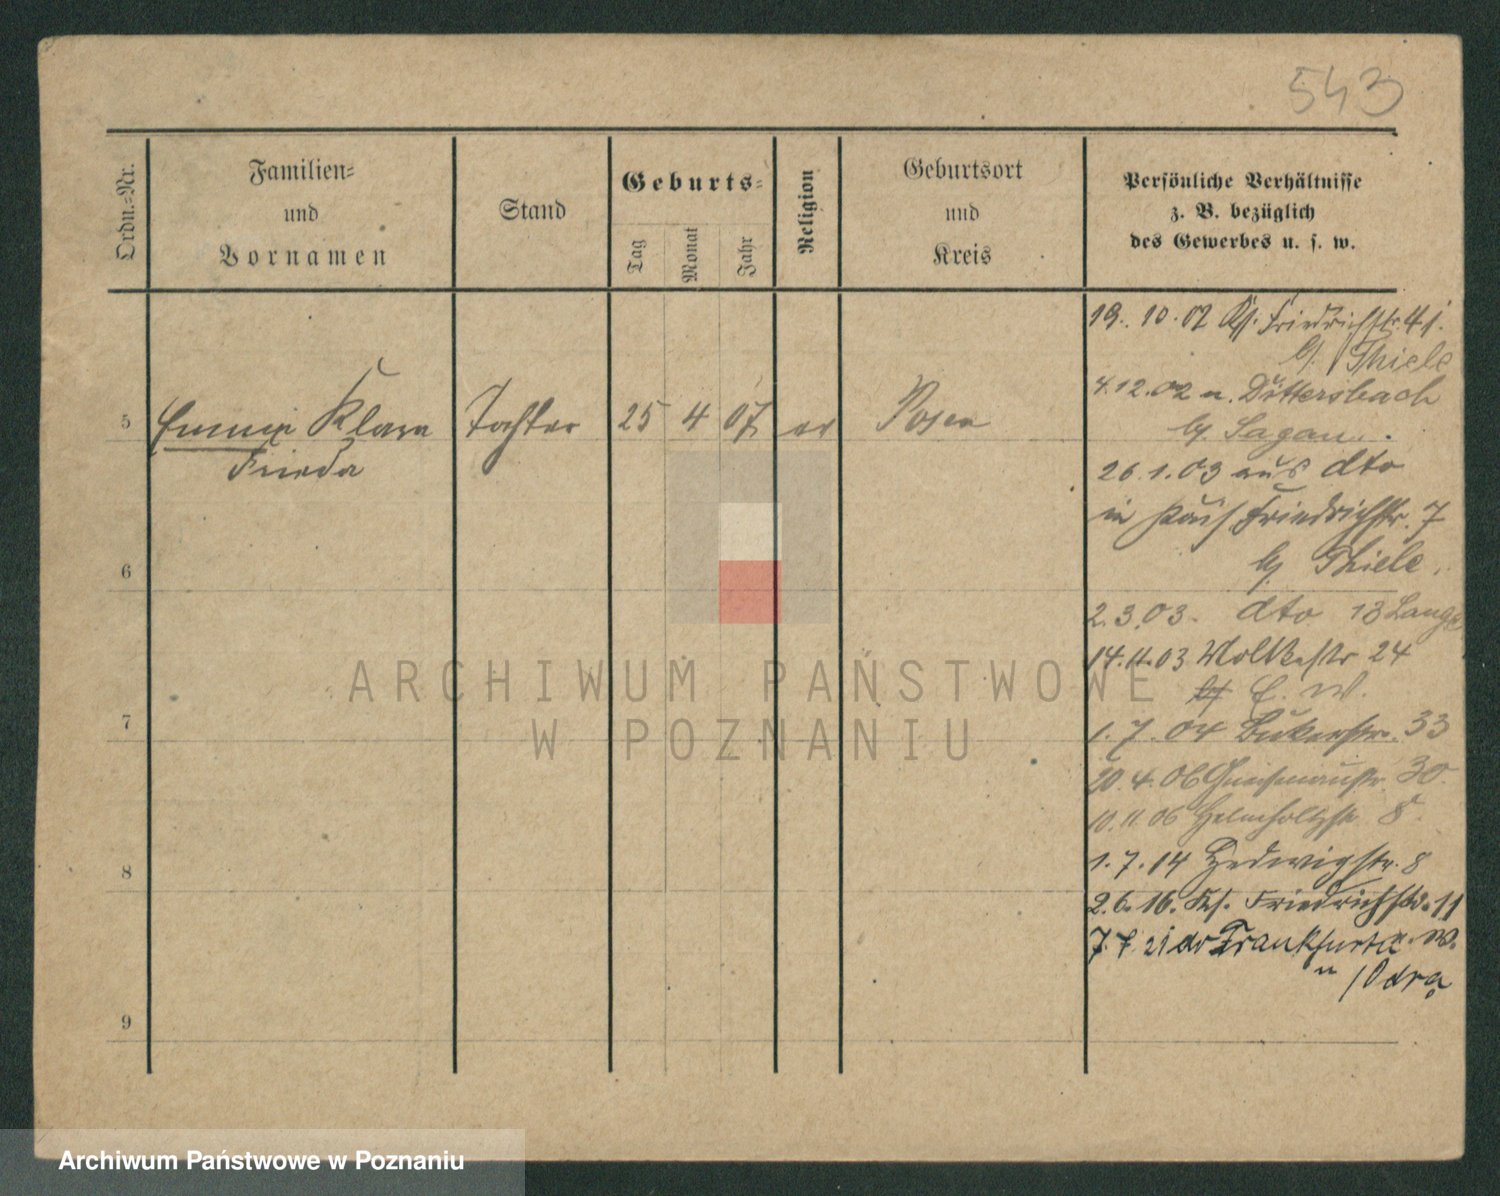 543
Ordn.-Nr.
Familien-
und
Vornamen
Stand
Geburts-
Tag
Monat
Jahr
Religion
Geburtsort
und
Kreis
Persönliche Verhältnisse
z. B. bezüglich
des Gewerbes u. s. w.
5
Emma Klara
Frieda
Tochter
25
4
07
ev
Posen
19. 10. 02 Ks. Friedrichstr. 41.
b/ Thiele
4.12.02 n. Dittersbach
b/ Sagan.
26.1.03 aus dto
in Friedrichstr. 7
b/ Thiele.
2.3.03. dto 13 Lange
14.11.03 Moltkestr 24
E. W.
1. 7. 04 Bukerstr. 33
20. 4. 06 Gneisenaustr. 30.
10. 11. 06 Helmholtzstr 8.
1. 7. 14 Hedwigstr. 8
2. 6. 16. Ks. Friedrichstr. 11
7. 7. 21 Frankfurt a. W.
" /Odra
6
7
8
9
ARCHIWUM PAŃSTWOWE
W POZNANIU
Archiwum Państwowe w Poznaniu